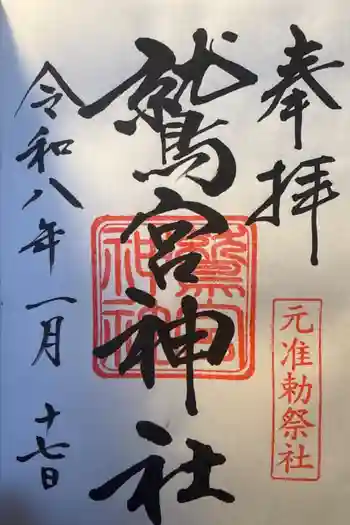 奉拝
元准勅祭社
鷲宮神社
鷲宮神社
令和八年一月十七日